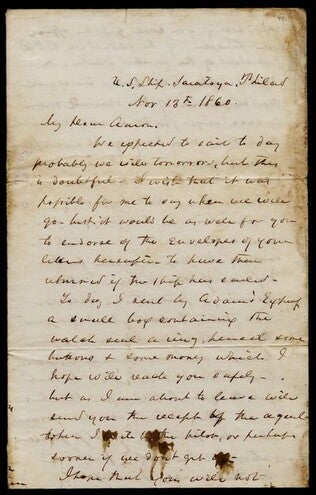 U.S. Ship. Saratoga, Philad
Nov 13th 1860.
My Dear Aaron.
We expected to sail to day
probably we will tomorrow, but this
is doubtful - I wish that it was
possible for me to say when we will
go - but it would be as well for you
to endorse of the Envelopes of your
letters hereafter to have them
returned if the ship has sailed -
To day I sent by Adams Express
a small box containing the
watch seal a ring, pencil some
buttons & some money which I
hope will reach you safely -
but as I am about to leave will
send you the receipt of the agent
when I the pilot, or perhaps
sooner if we don't get off -
I hope that you will not